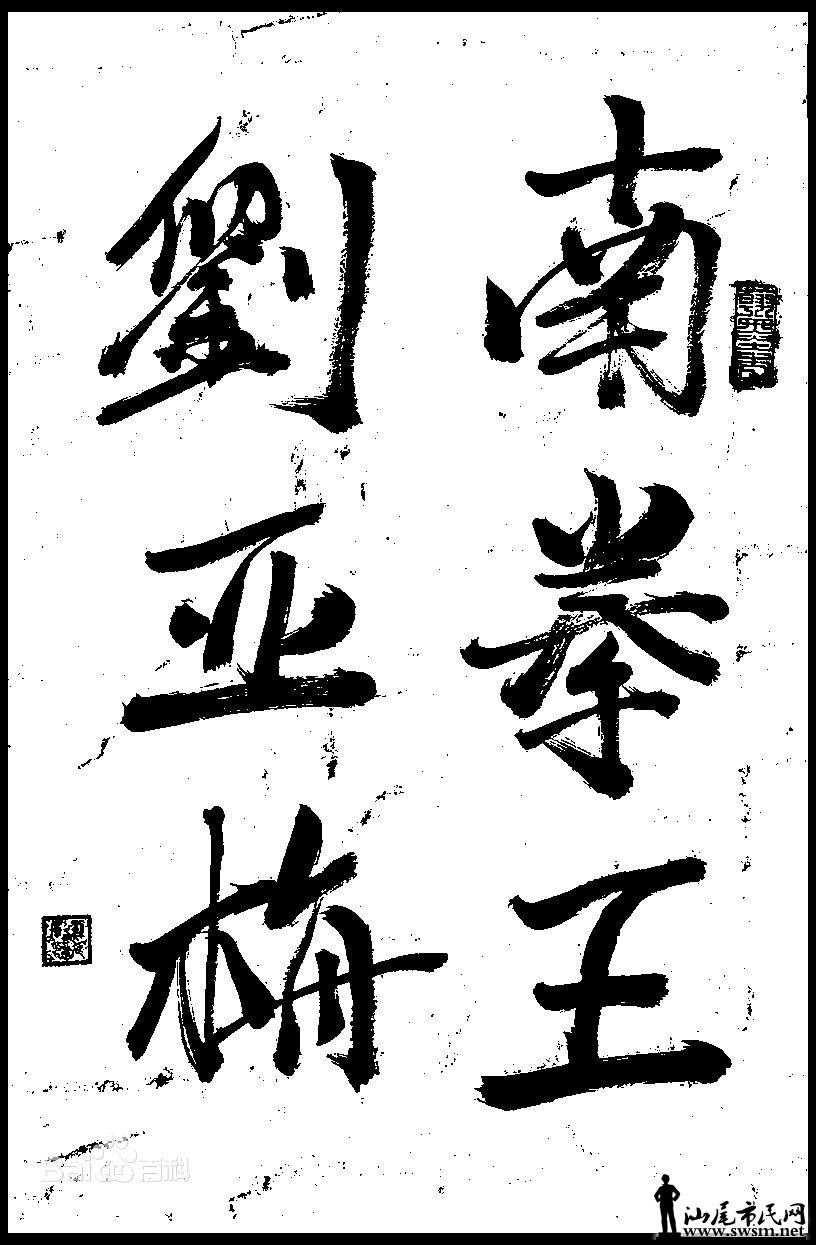 南拳王
劉亚梅
Baidu百科
汕尾市民网
www.swsm.net